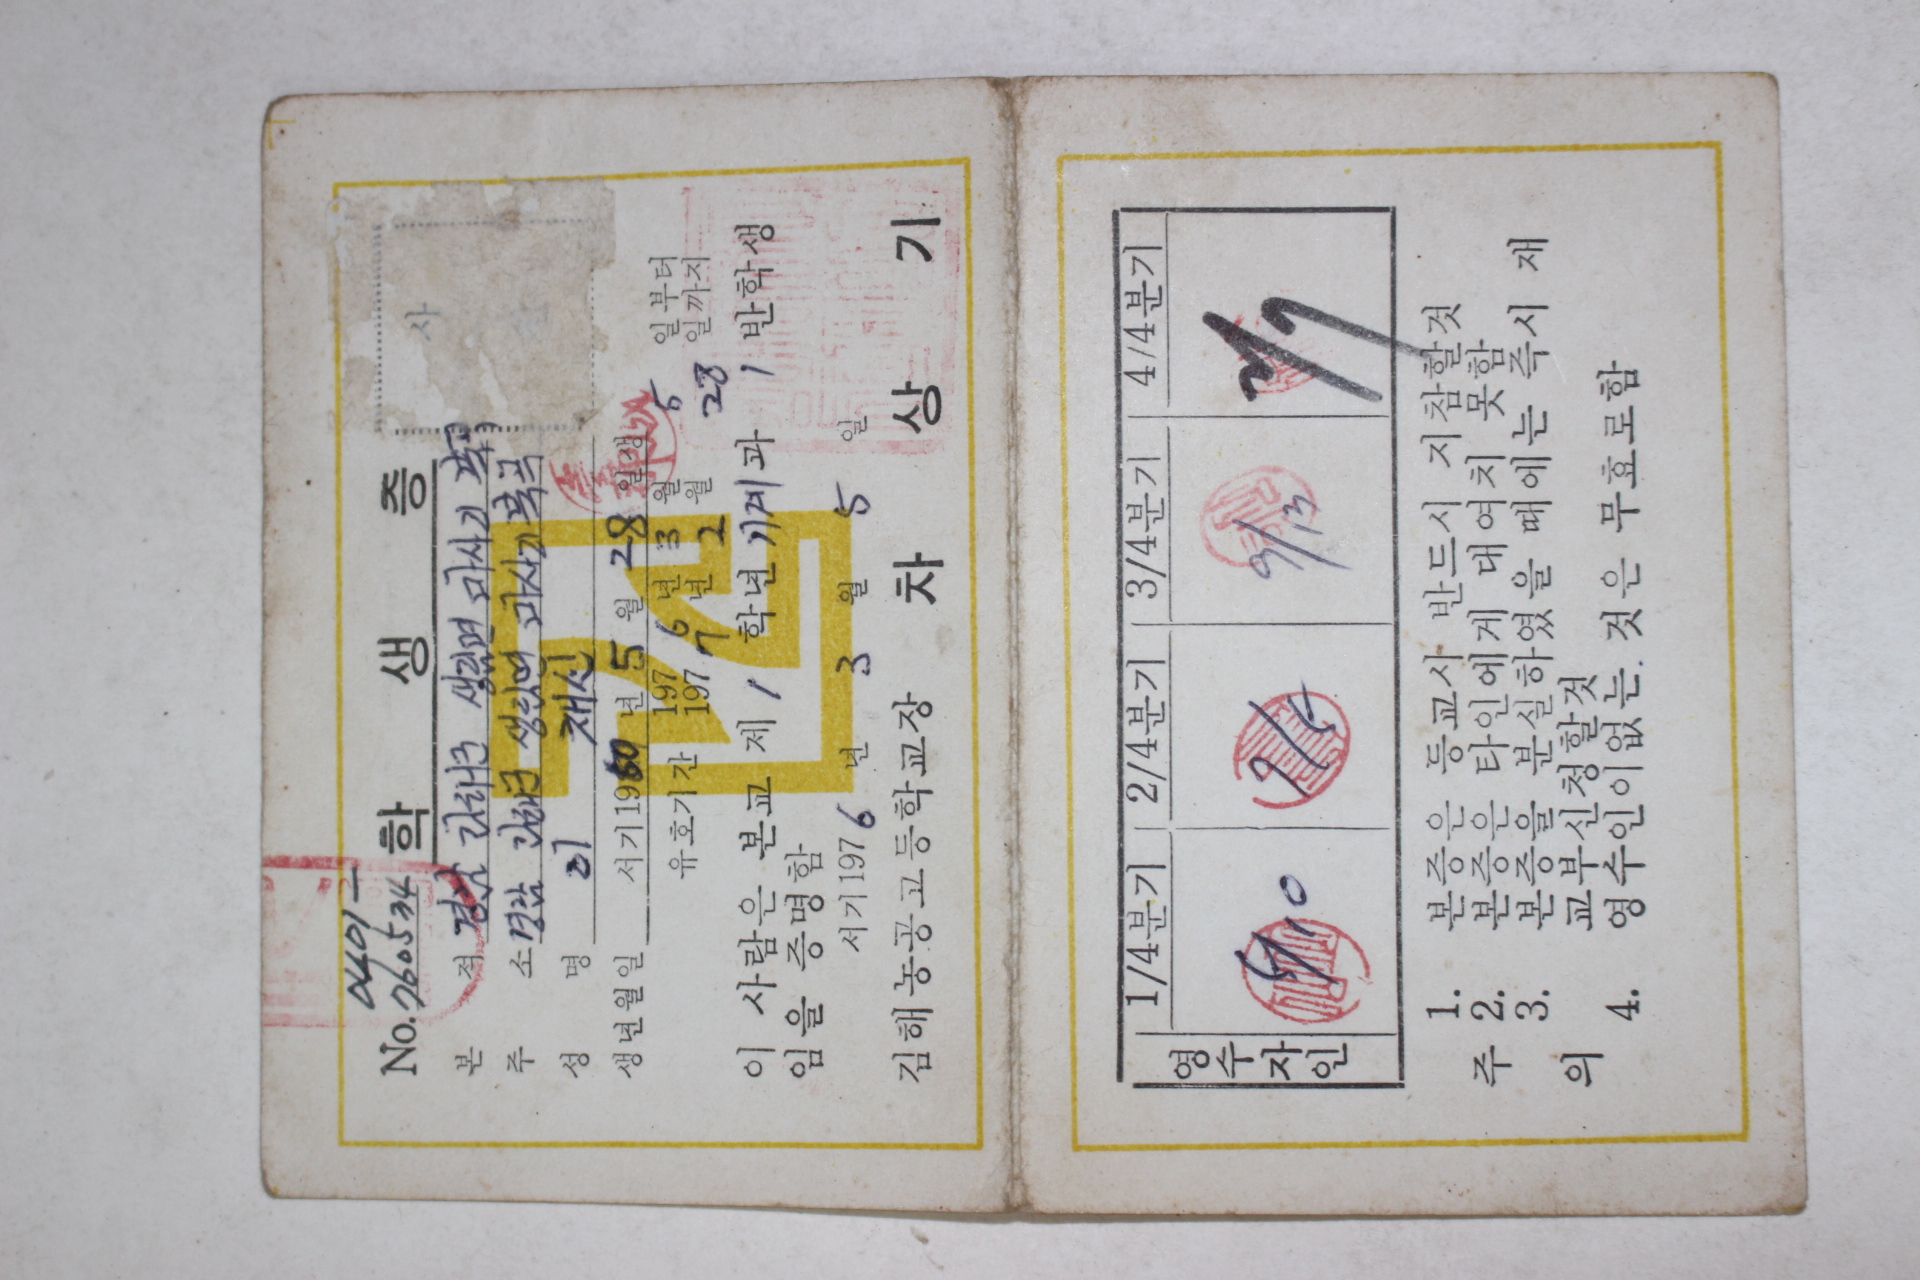 0401-
No. 2605534
학생증
사
본적 경남 김해군 생림면 마사리
주소 경남 김해군 생림면 마사리
성명 이재신
생년월일 서기1960년 5월 28일생
유호기간 1976년 3월 5일부터
1977년 2월 28일까지
이 사람은 본교 제 1 학년 기계과 1 반학생
임을 증명함
서기1976년 3월 5일
김해농공고등학교장 차상기
영수자인
1/4분기 2/4분기 3/4분기 4/4분기
7/2 9/13
주의
1. 본증은 등교시 반드시 지참할것
2. 본증은 타인에게 대여치 못함
3. 본증을 분실하였을 때에는 즉시 재
교부신청할것
4. 영수인이없는. 것은 무효로함